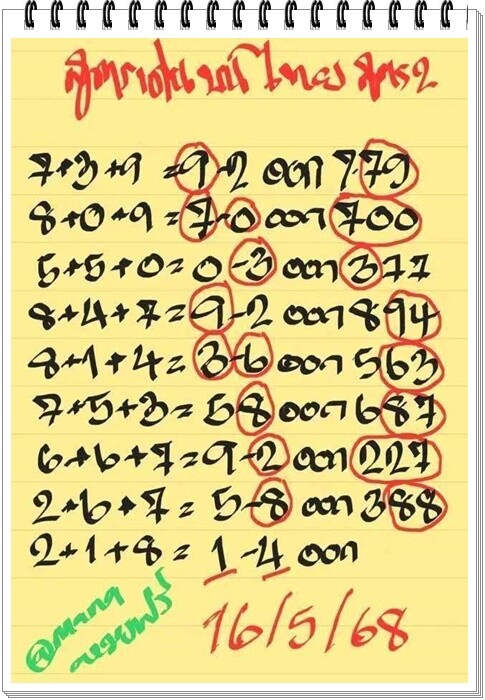 7+3+9 =9-2 ออก 779
8+0+9=7-0 ออก 700
5+5+0=0-3 ออก 377
8+4+7=9-2 ออก 894
8+1+4=3-6 ออก 563
7+5+3=58 ออก 687
6+6+7=9-2 ออก 227
2+6+7=5-8 ออก 388
2+1+8=1-4 ออก
16/5/68